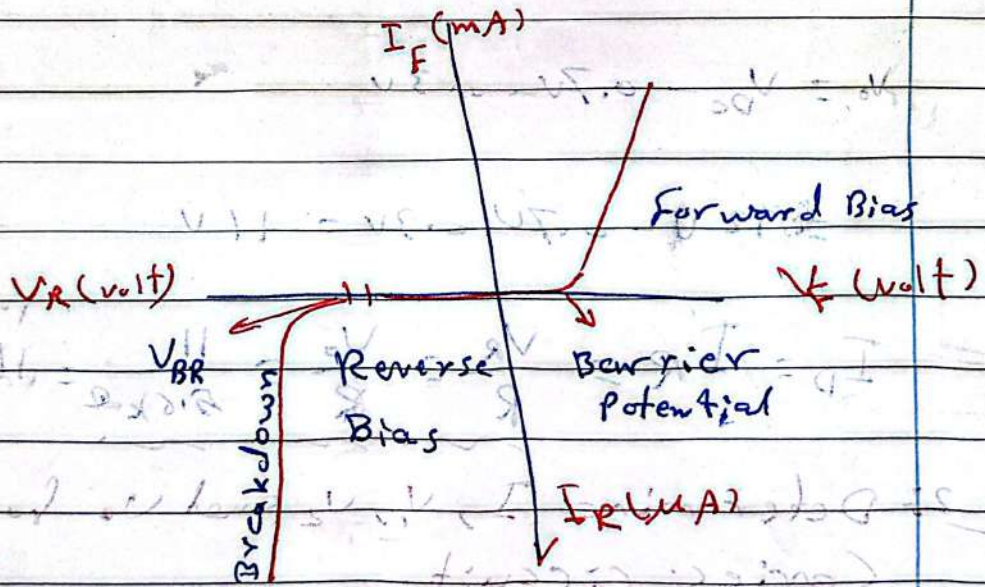 I_F (mA)
Forward Bias
V_R (volt)
V_F (volt)
V_BR
Reverse
Bias
Barrier
Potential
Breakdown
I_R (μA)